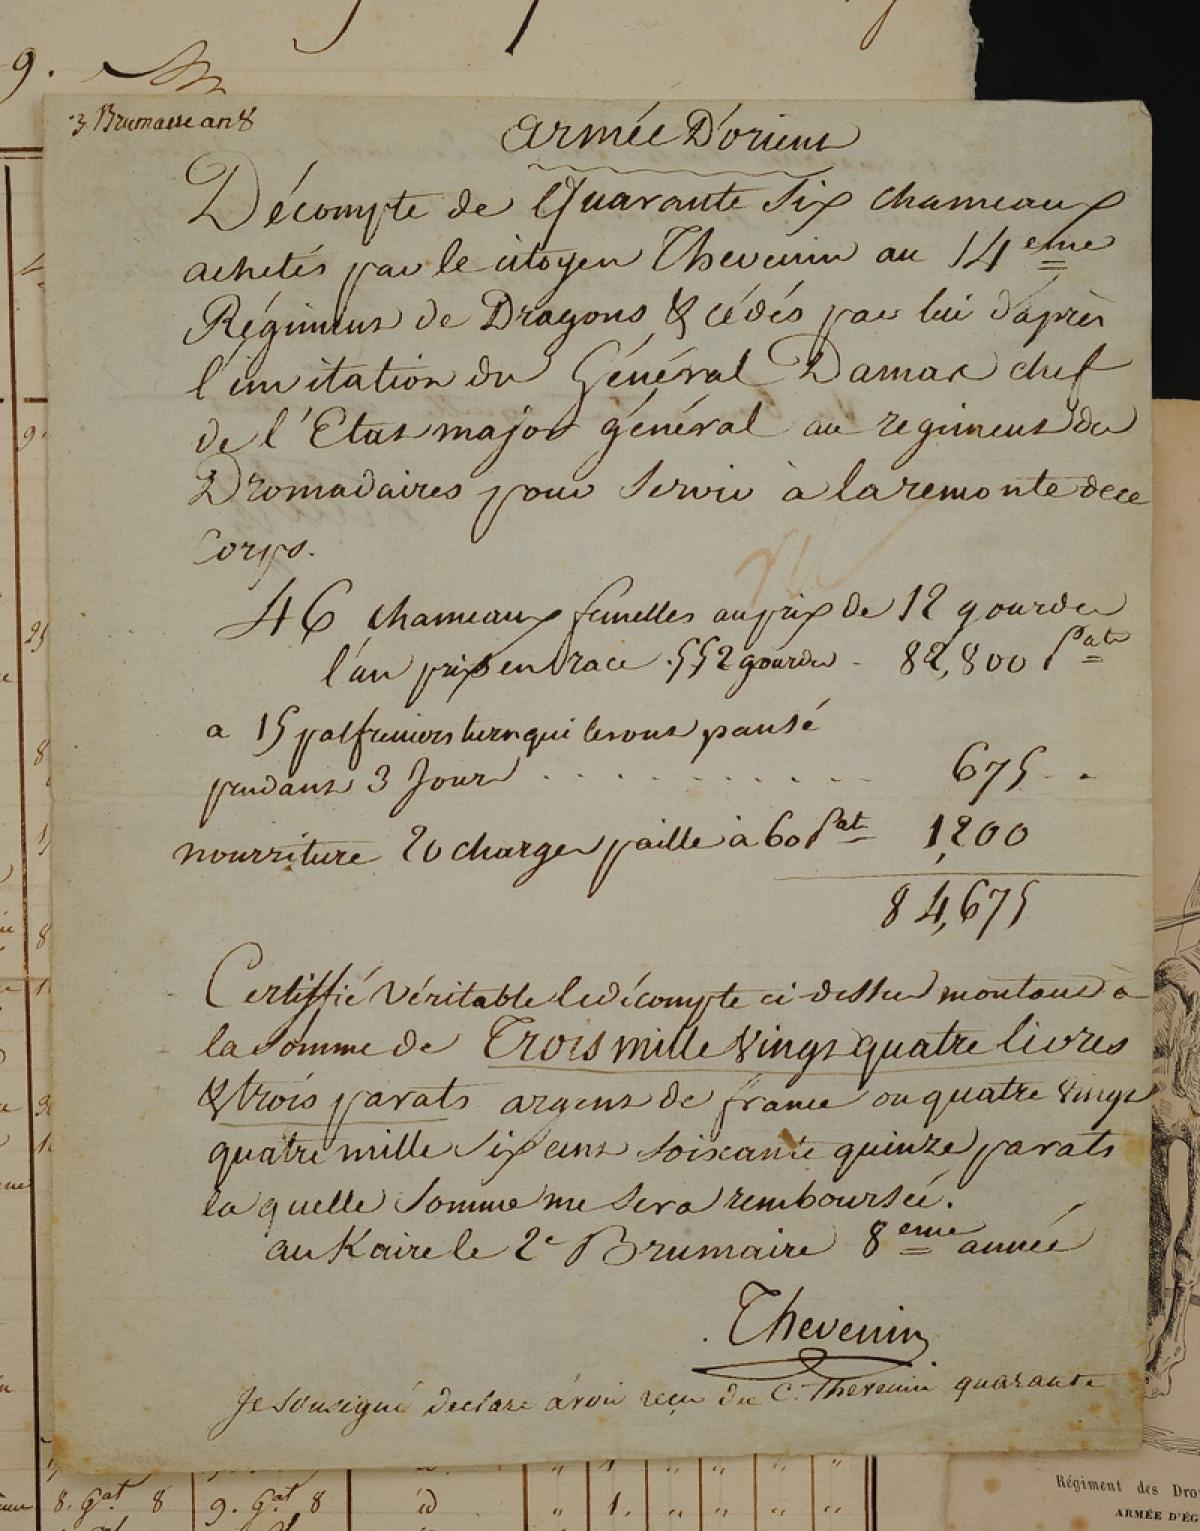 9.
3 Brumaire an 8
Armée D'orient
Décompte de Quarante Six chameaux
achetés par le citoyen Thevenin au 14eme
Régiment de Dragons & cédés par lui d'après
l'invitation du Général Damas chef
de l'Etat major général au regiment du
Dromadaires pour servir à la remonte de ce
Corps.
46 chameaux femelles au prix de 12 gourdes
l'un prix en race 552 gourdes - 82,800 Pats
a 15 palfreniers turcs qui les ont pansé
pendant 3 Jours . . . . . . . . . . . 675 - .
nourriture 20 charges paille à 60 Pats 1,200
84,675
Certiffié véritable le décompte ci dessus montant à
la somme de Trois mille vingt quatre livres
& trois parats argent de france ou quatre vingt
quatre mille six cent soixante quinze parats
la quelle somme me sera remboursée.
au Kaire le 2e Brumaire 8eme année
Thevenin
Je sousigné declare avoir reçu du C. Thevenin quarante
8. Gat. 8 9. Gat 8 id " 1. " " " "
Régiment des Dro
ARMÉE D'ÉG